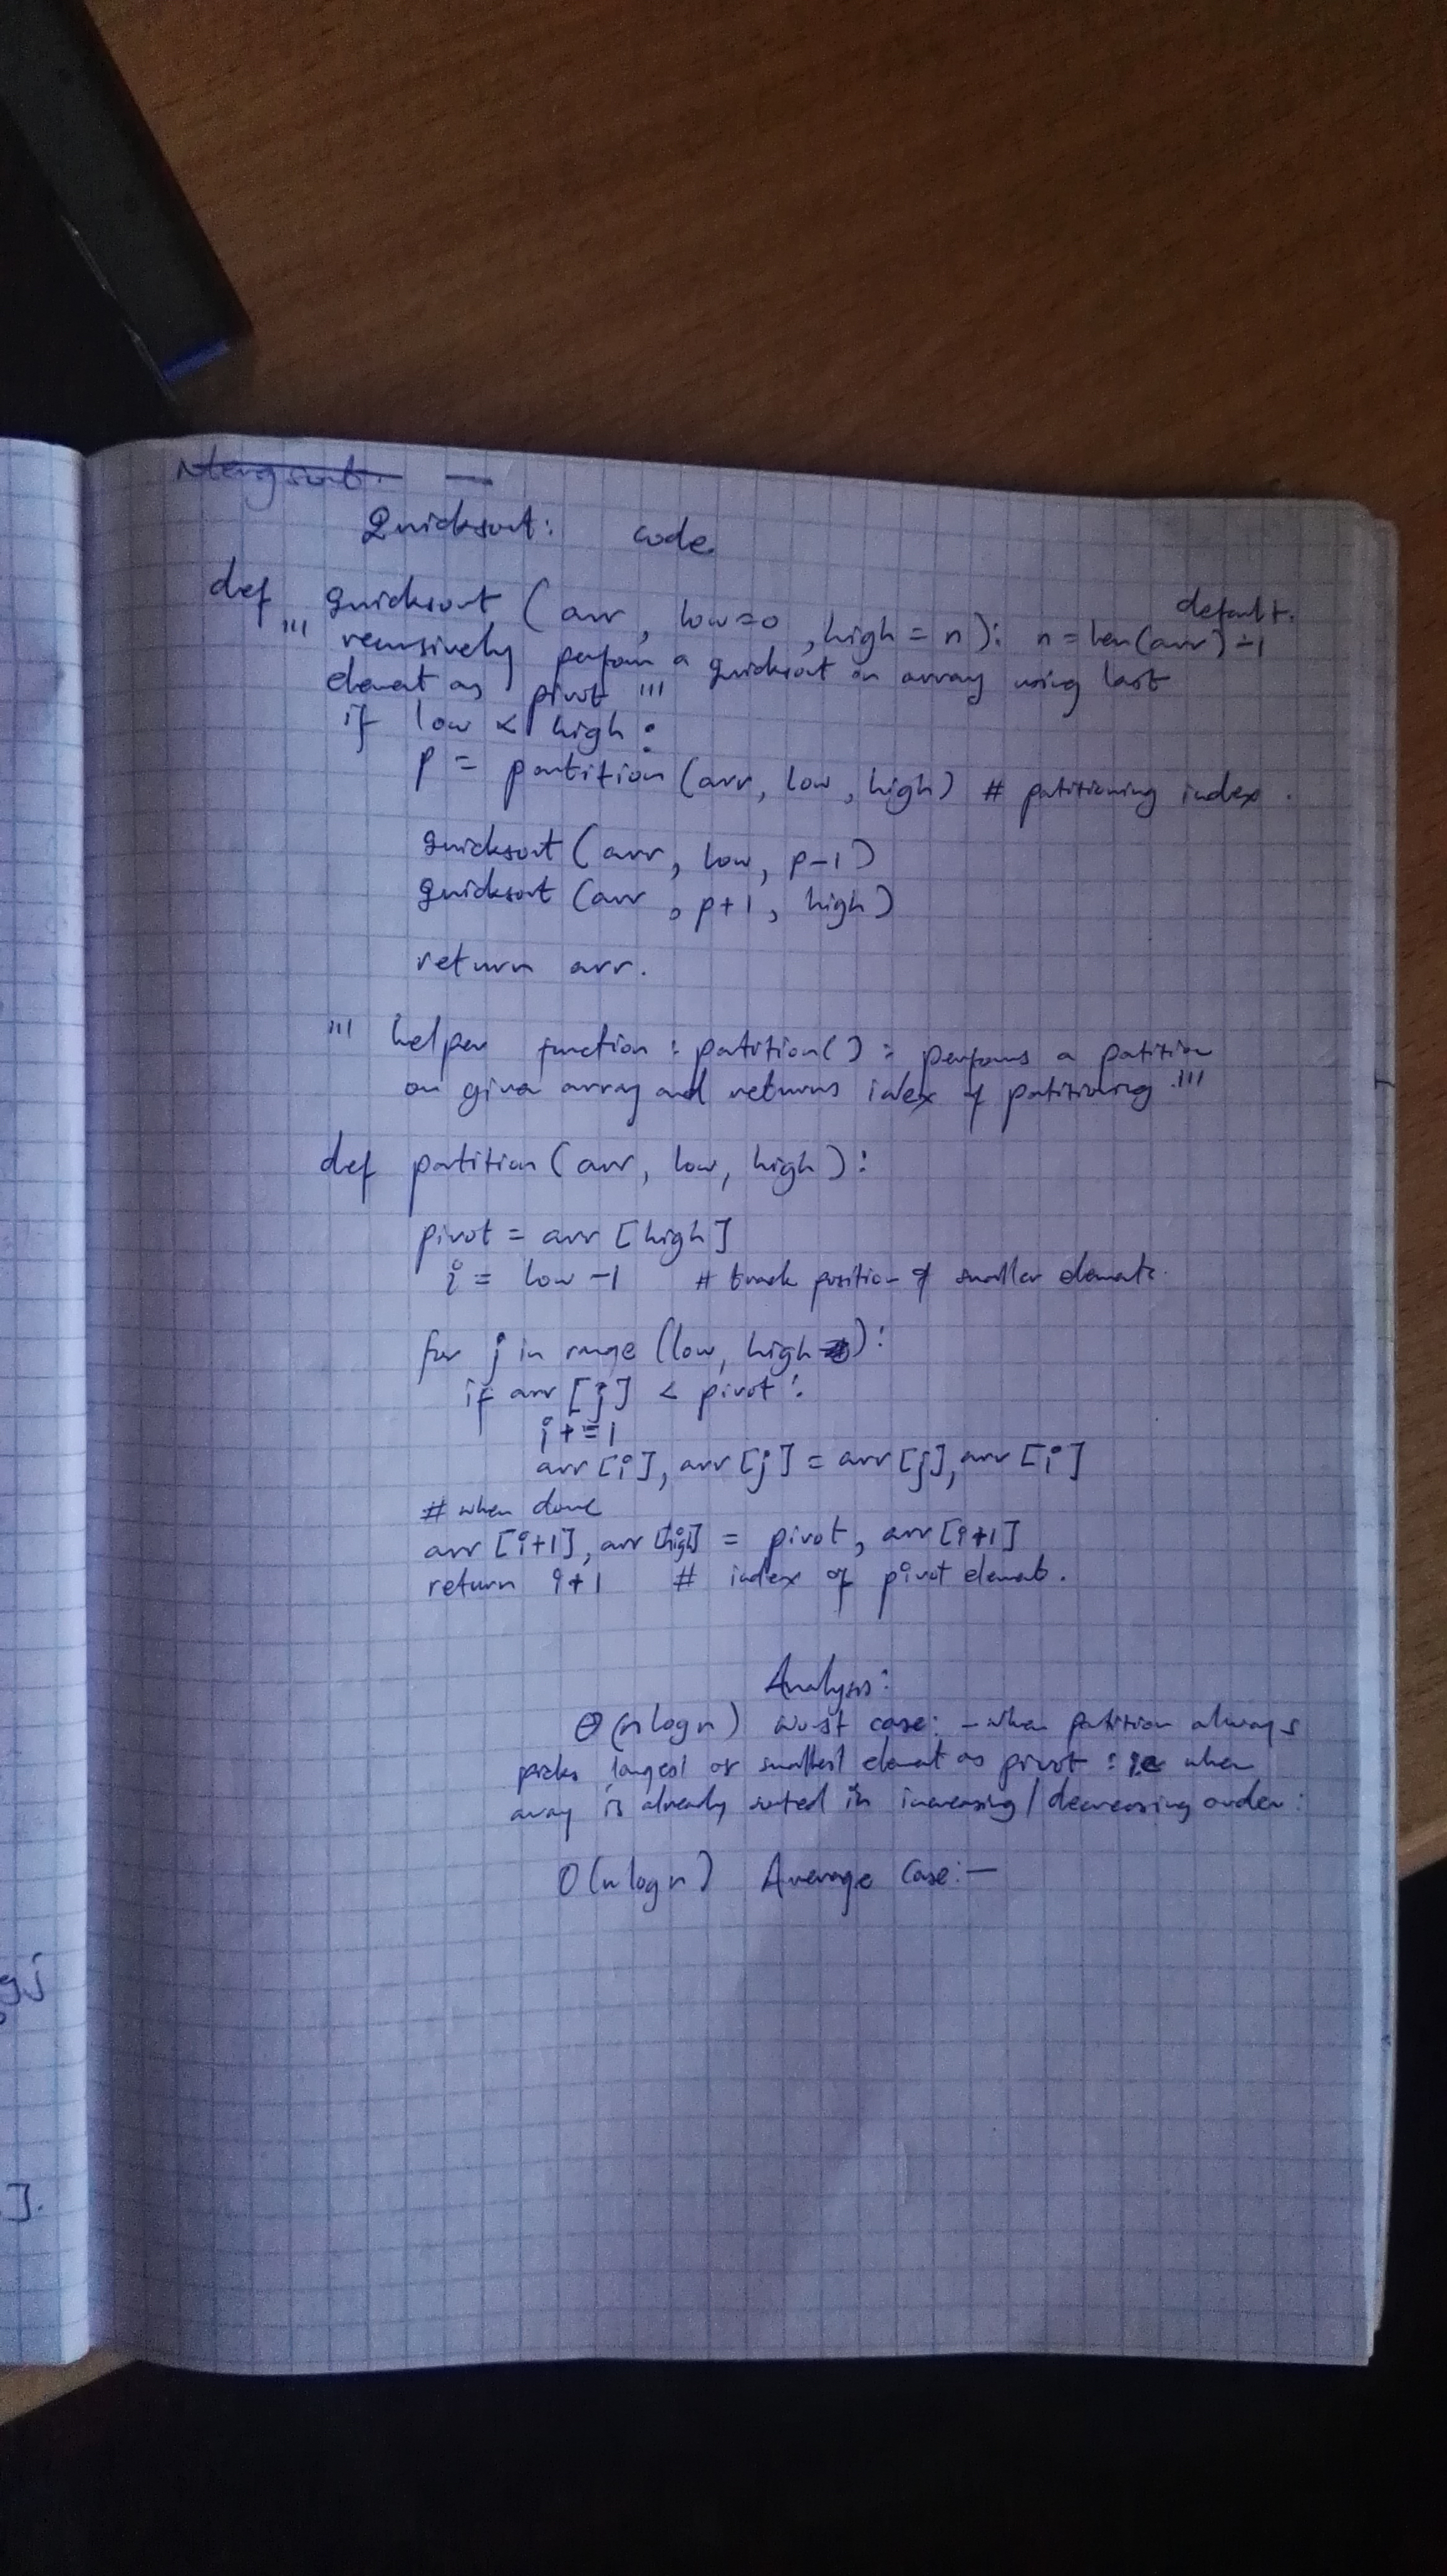 Mergsort. —
Quicksort: code
default.
def quicksort (arr, low=0, high = n): n = len(arr) -1
''' recursively perfom a quicksort on array using last
element as pivot '''
if low < high:
p = partition (arr, low, high) # patitioning index.
quicksort (arr, low, p-1)
quicksort (arr, p+1, high)
return arr.
''' helper function : patition() : perfoms a patition
on given array and returns index of patitioning '''
def partition (arr, low, high):
pivot = arr [high]
i = low -1 # track position of smaller elements.
for j in range (low, high):
if arr [j] < pivot:
i += 1
arr [i], arr [j] = arr [j], arr [i]
# when done
arr [i+1], arr [high] = pivot, arr [i+1]
return i+1 # index of pivot element.
Analysis:
Θ(n log n) worst case: - when patition always
picks largest or smallest element as pivot : ie when
array is already sorted in increasing / decreasing order:
O(n log n) Average Case:—
gj
].